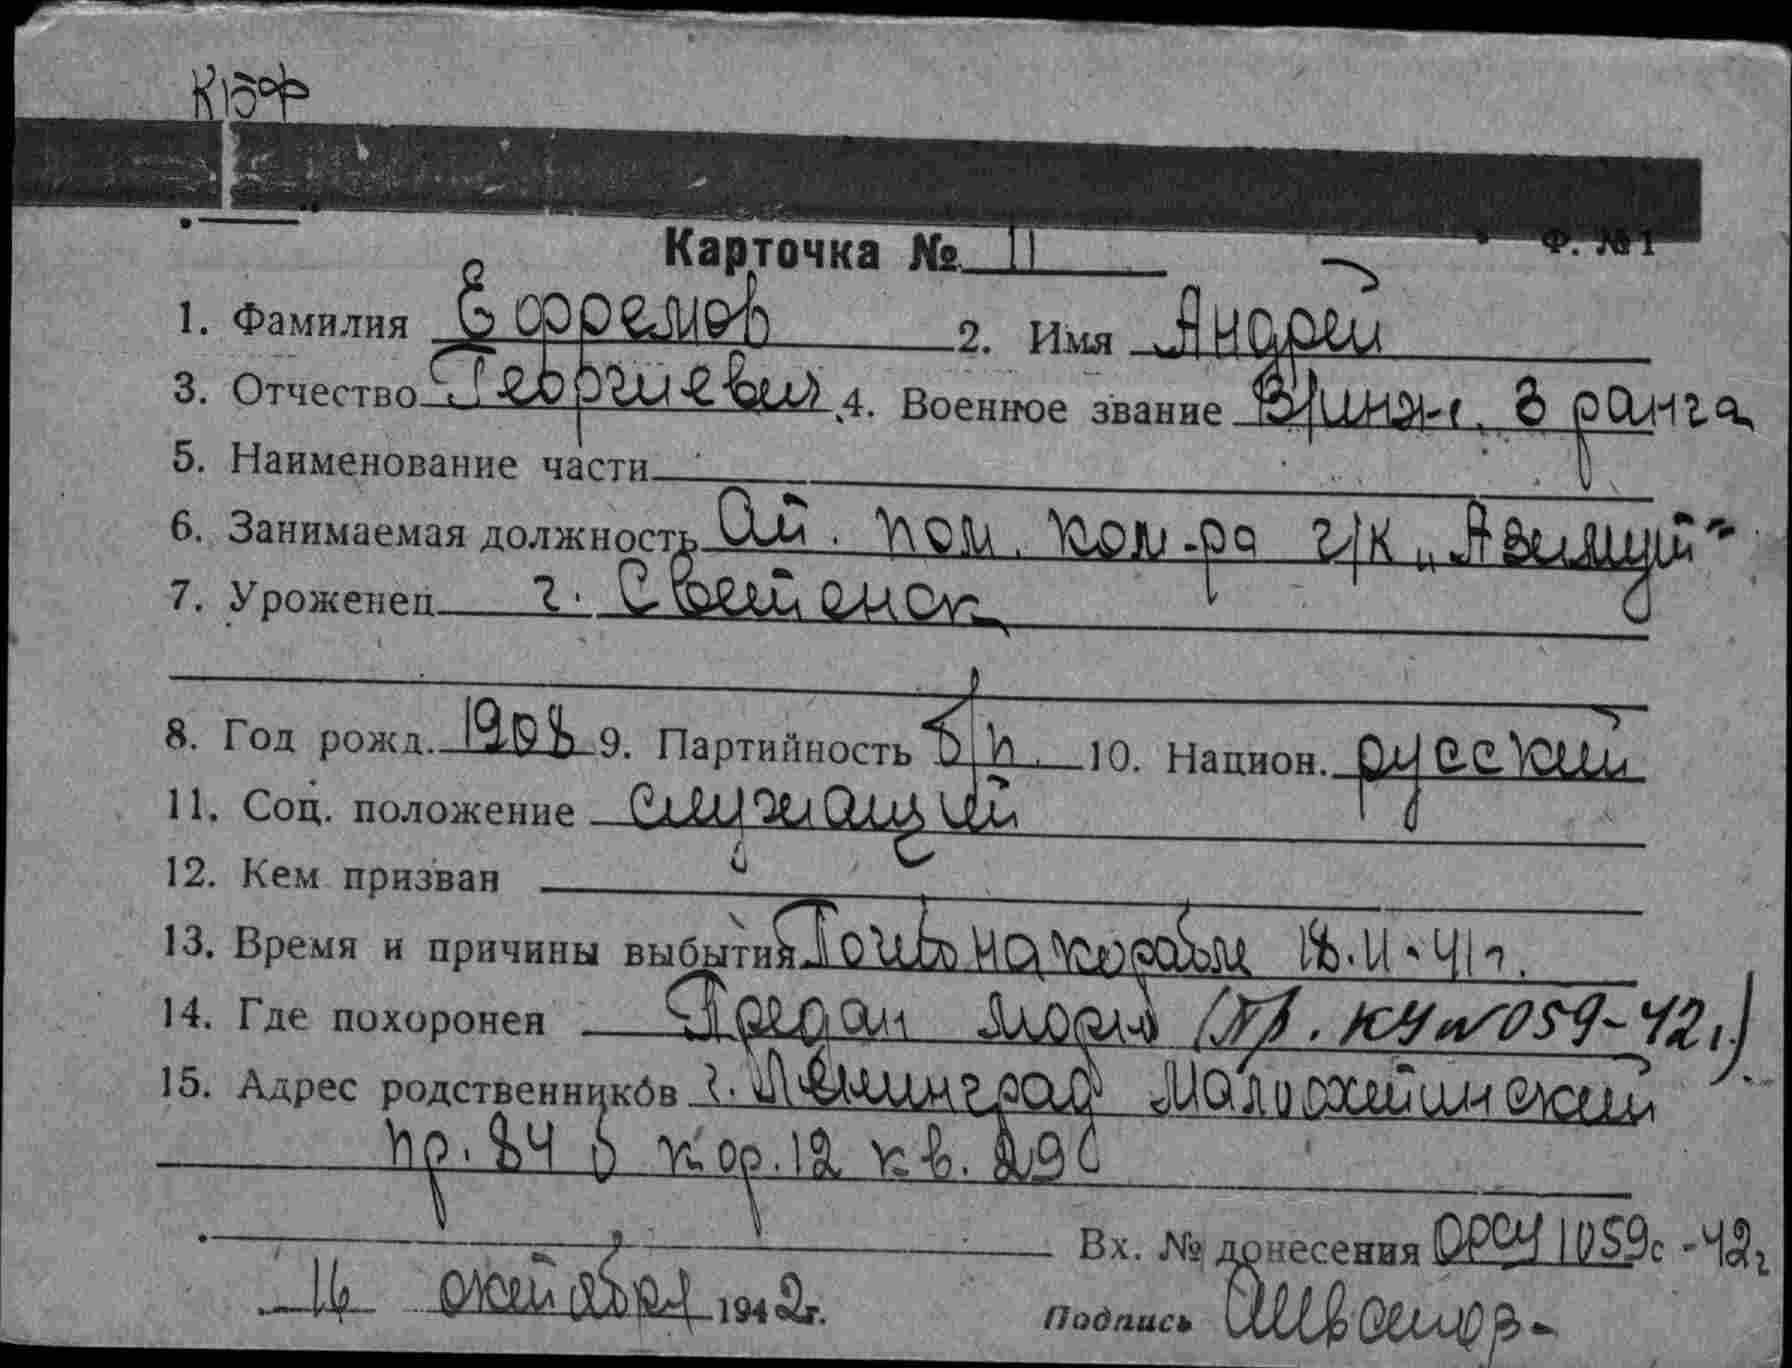 КБФ
Ф. №1
Карточка № 11
1. Фамилия Ефремов 2. Имя Андрей
3. Отчество Георгиевич 4. Военное звание В/инж. 3 ранга
5. Наименование части
6. Занимаемая должность Ст. пом. ком-ра г/к „Азимут"
7. Уроженец г.
8. Год рожд. 1908 9. Партийность б/п. 10. Национ. русский
11. Соц. положение служащий
12. Кем призван
13. Время и причины выбытия Погиб на корабле 18.11.41г.
14. Где похоронен Предан морю (Пр. КУ №059-42г.)
15. Адрес родственников г. Ленинград Малоохтинский
пр. 84 б кор. 12 кв. 290
Вх. № донесения ОРСУ 1059с-42г
16 октября 1942г. Подпись